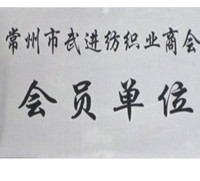 常州市武进纺织业商会
会员单位